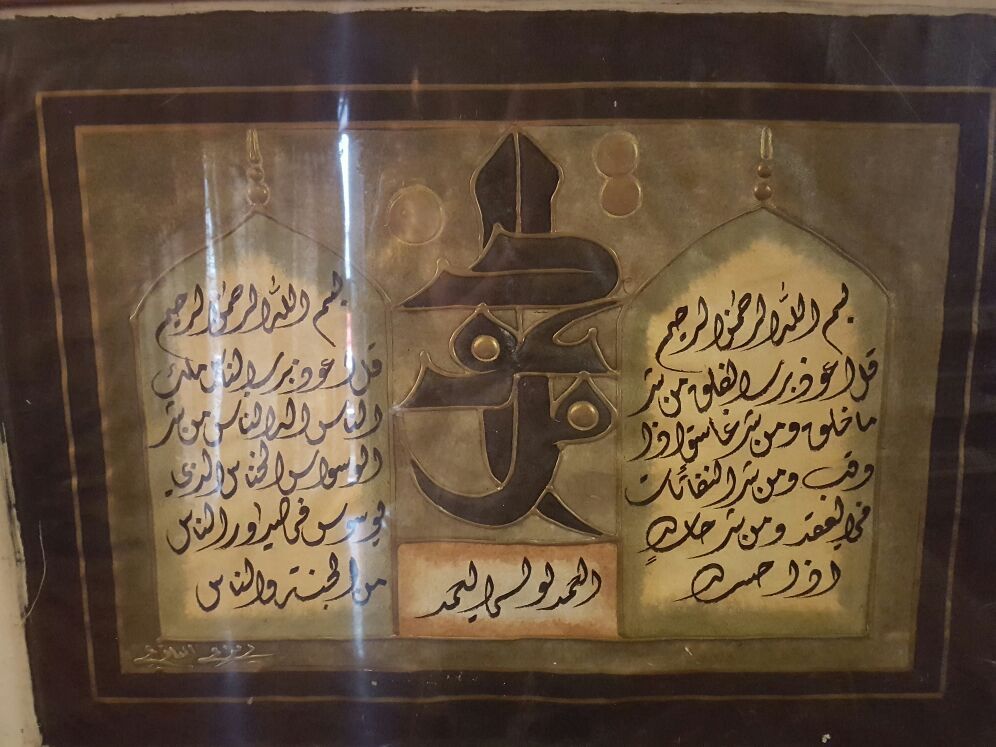 بسم الله الرحمن الرحيم
قل اعوذ برب الفلق من شر
ما خلق ومن شر غاسق اذا
وقب ومن شر النفاثات
في العقد ومن شر حاسد
اذا حسد
الحمد لولي الحمد
بسم الله الرحمن الرحيم
قل اعوذ برب الناس ملك
الناس اله الناس من شر
الوسواس الخناس الذي
يوسوس في صدور الناس
من الجنة والناس